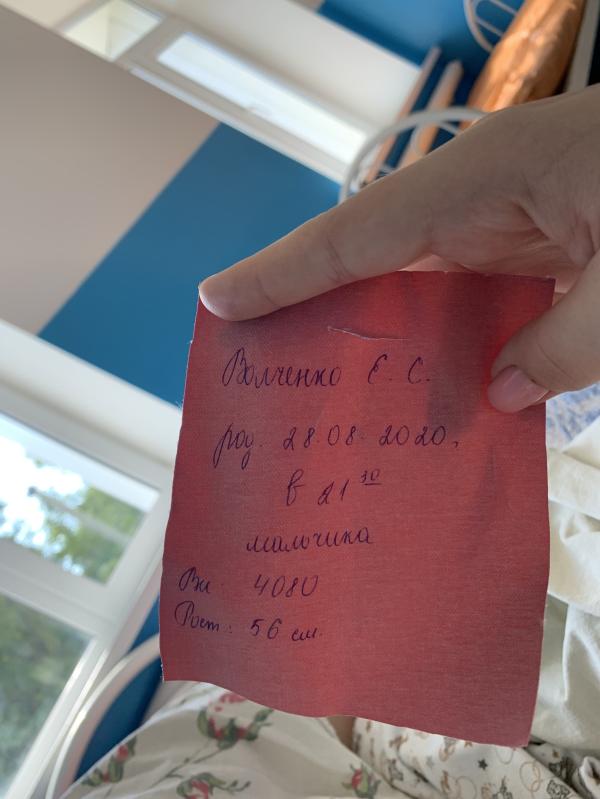 Волченко Е. С.
род. 28.08.2020,
в 21 30
мальчика
Вы 4080
Рост: 56 см.